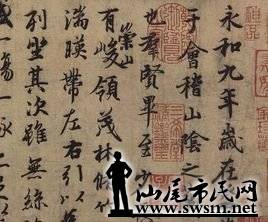 永和九年歲在
于會稽山陰之
也群賢畢至少
有崇山峻領茂林脩
湍暎帶左右引以
列坐其次雖無絲
一觴一詠
汕尾市民网
www.swsm.net